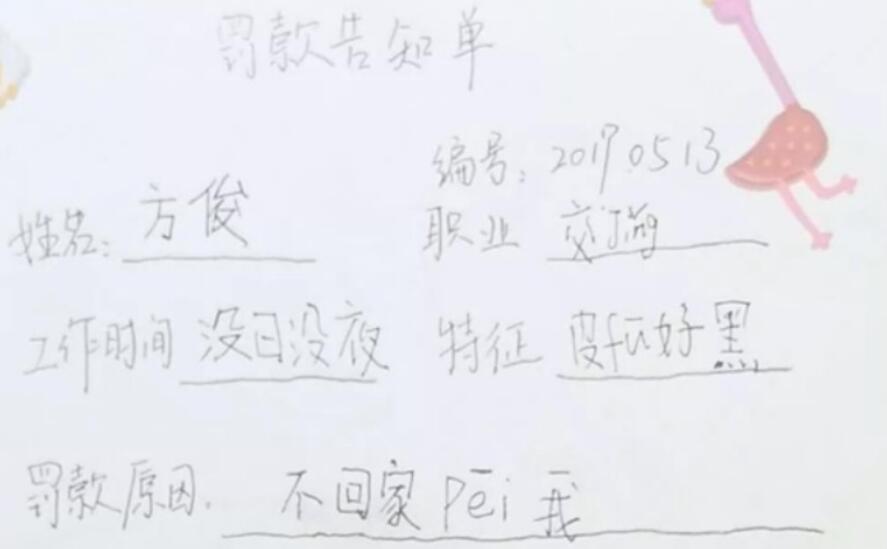 罚款告知单
编号：2017.05.13
姓名：方俊 职业 交jǐng
工作时间 没日没夜 特征 皮fū好黑
罚款原因. 不回家Péi我